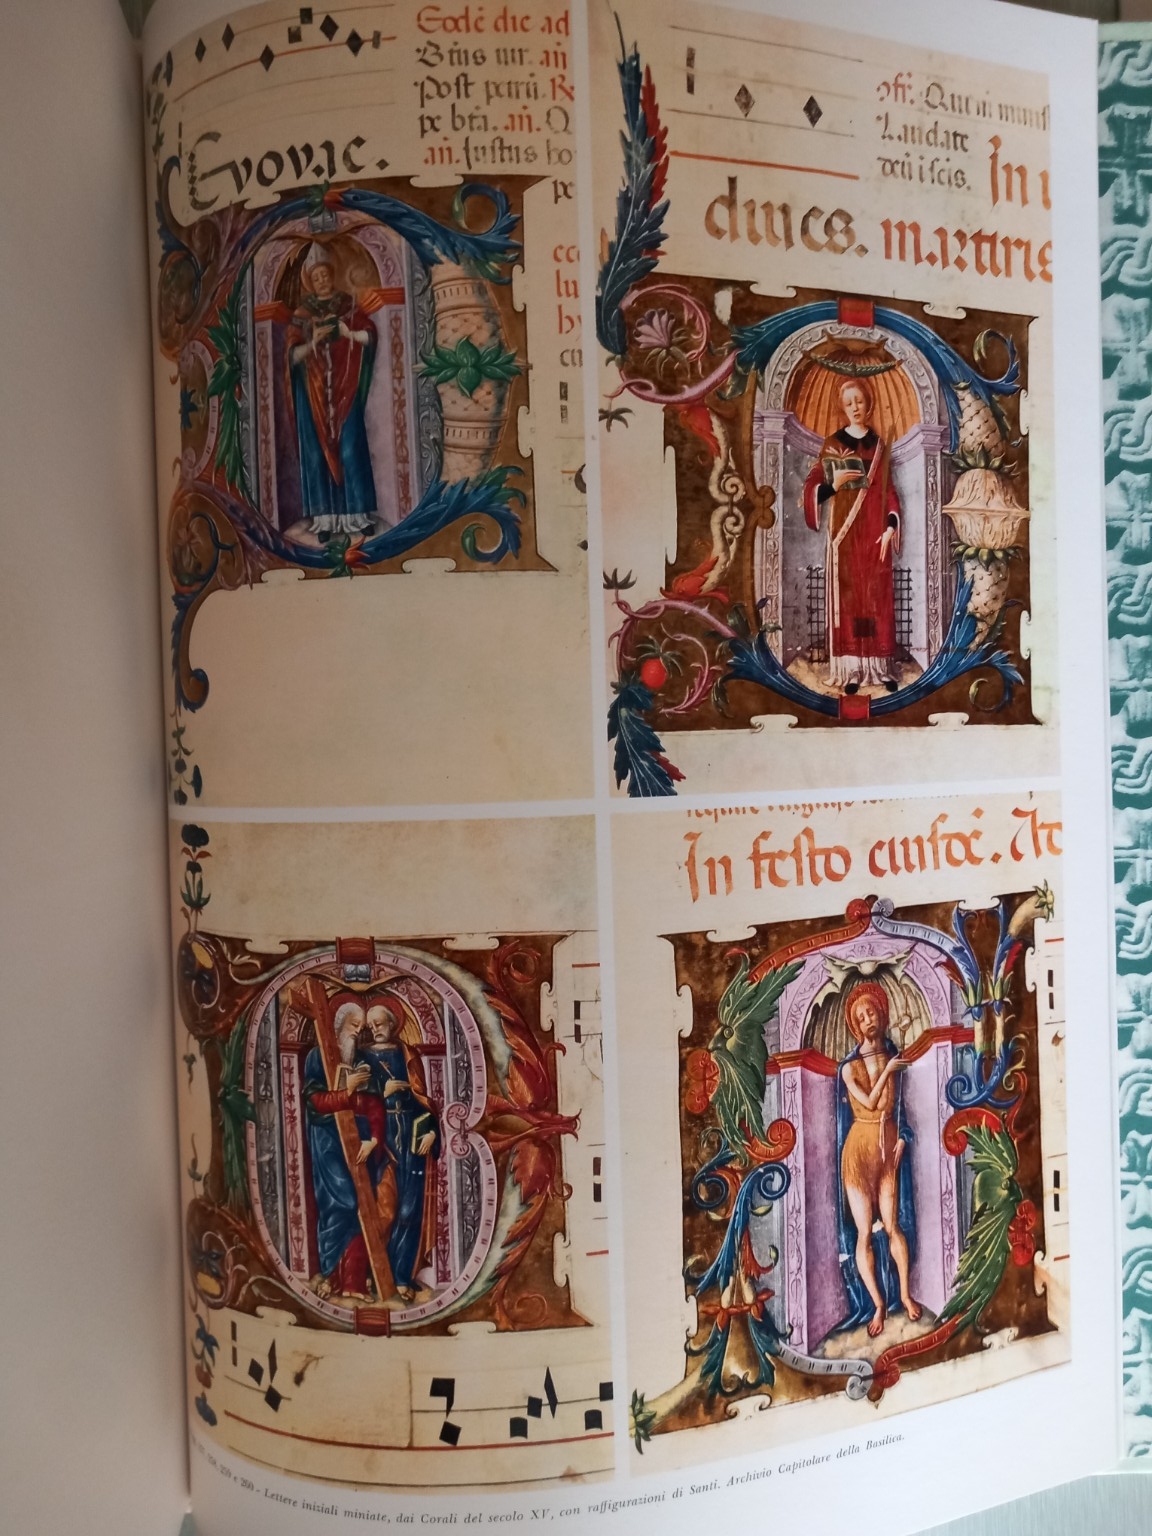 Eodē die ad
Btūs vir. añ
Post petrū. R
pe btā. añ. Q
añ. Justus ho
pe
Evovae.
ecc
lu
cu
Laudate
deū i scis.
In
martiris
In festo eiusdē. Ad
259 e 260 - Lettere iniziali miniate, dai Corali del secolo XV, con raffigurazioni di Santi. Archivio Capitolare della Basilica.